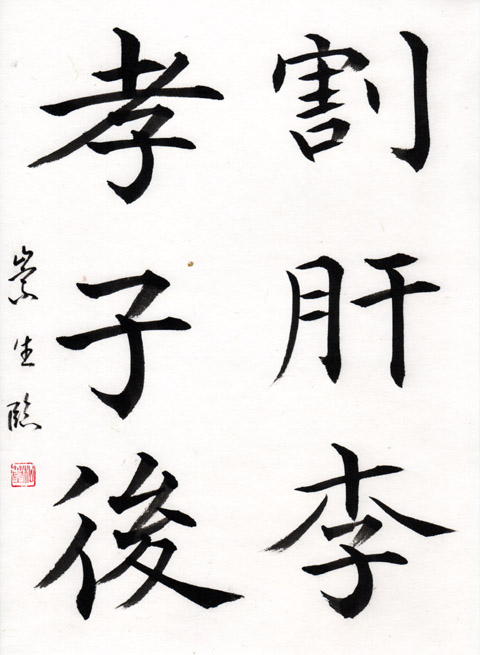 割肝李
孝子後
崇生臨